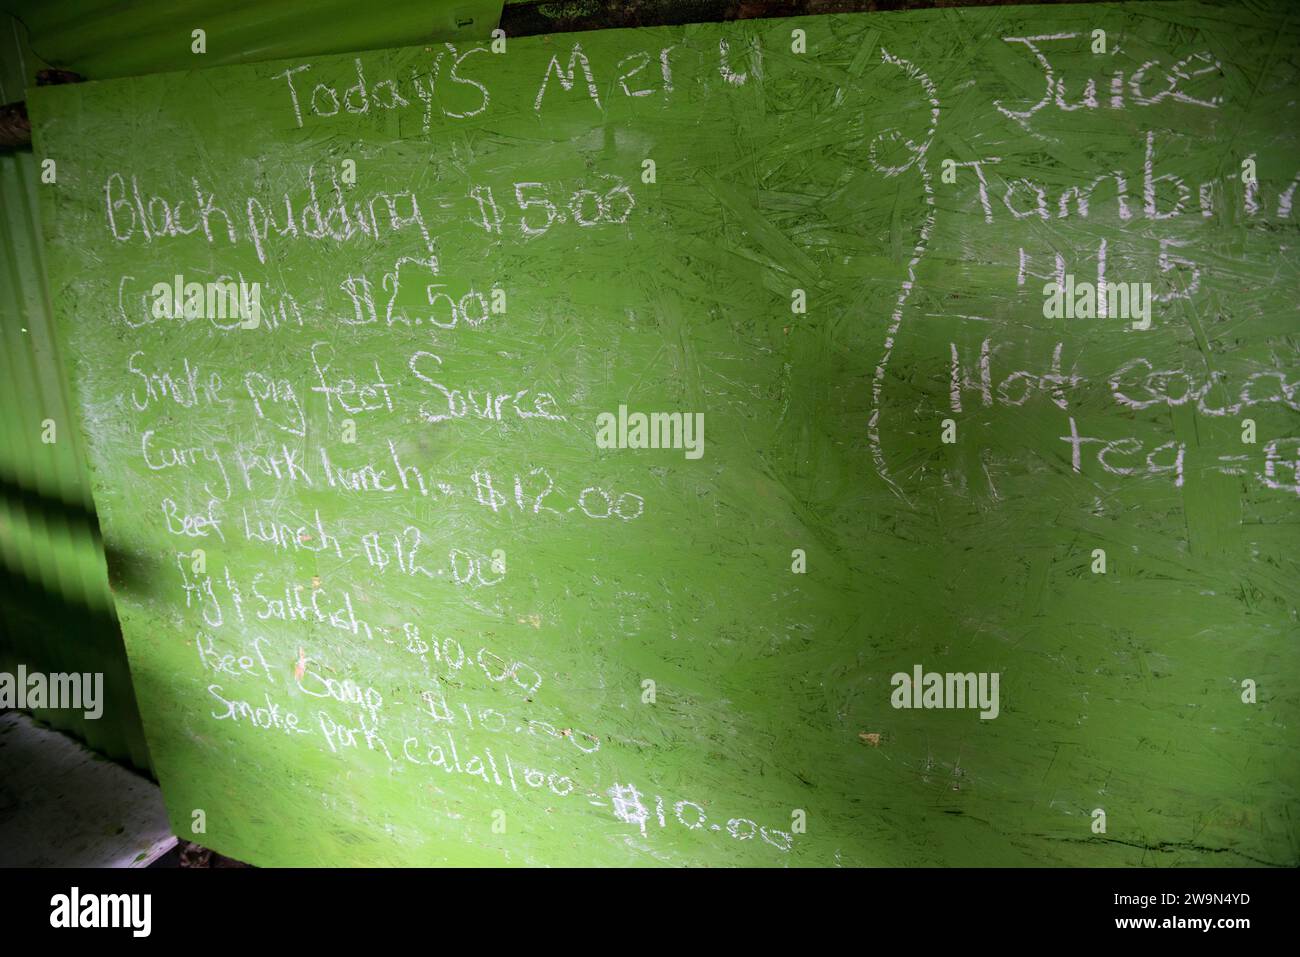 Today's Menu
Black pudding - $5.00
Cow Skin $2.50
Smoke pig feet Source
Curry pork lunch - $12.00
Beef Lunch $12.00
Fig & Saltfish - $10.00
Beef Soup - $10.00
Smoke pork calalloo - $10.00
Juice
Tambrin
Hot coco
tea -
alamy
Image ID: 2W9N4YD
www.alamy.com